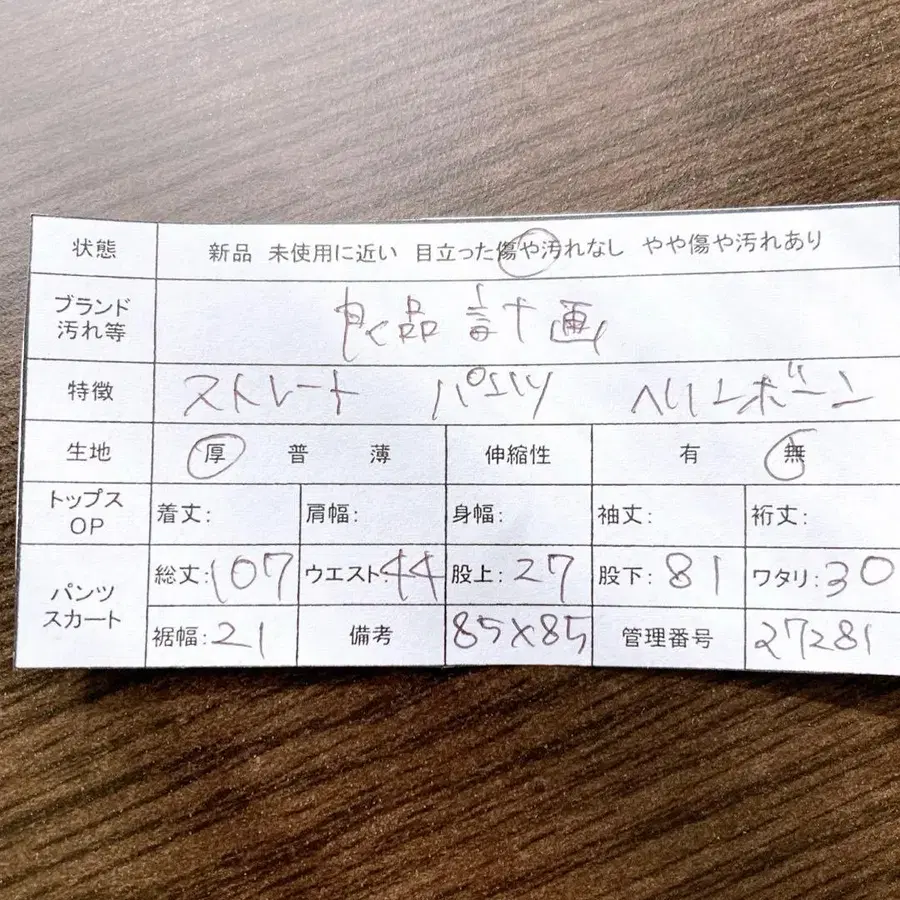 状態 新品 未使用に近い 目立った傷や汚れなし やや傷や汚れあり
ブランド 良品計画
汚れ等
特徴 ストレート パンツ ヘリンボーン
生地 厚 普 薄 伸縮性 有 無
トップス
OP 着丈: 肩幅: 身幅: 袖丈: 裄丈:
総丈:107 ウエスト:44 股上:27 股下:81 ワタリ:30
パンツ
スカート
裾幅:21 備考 85×85 管理番号 27281